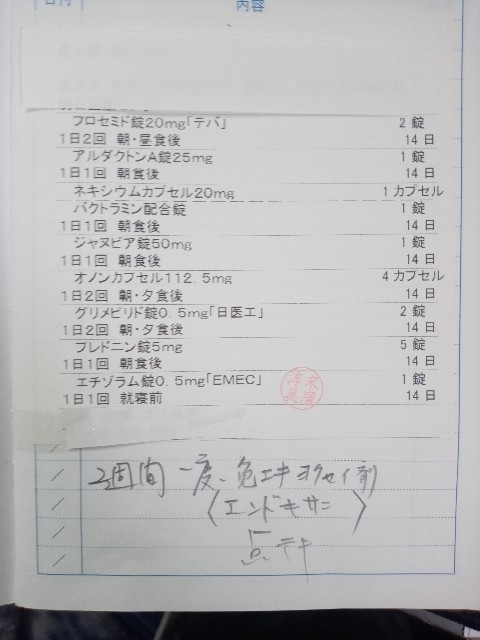 日付
内容
フロセミド錠20mg「テバ」 2 錠
1日2回 朝・昼食後 14 日
アルダクトンA錠25mg 1 錠
1日1回 朝食後 14 日
ネキシウムカプセル20mg 1 カプセル
バクトラミン配合錠 1 錠
1日1回 朝食後 14 日
ジャヌビア錠50mg 1 錠
1日1回 朝食後 14 日
オノンカプセル112.5mg 4 カプセル
1日2回 朝・夕食後 14 日
グリメピリド錠0.5mg「日医工」 2 錠
1日2回 朝・夕食後 14 日
プレドニン錠5mg 5 錠
1日1回 朝食後 14 日
エチゾラム錠0.5mg「EMEC」 1 錠
1日1回 就寝前 14 日
2週間一度、免エキヨクセイ剤
〈エンドキサン〉
点テキ